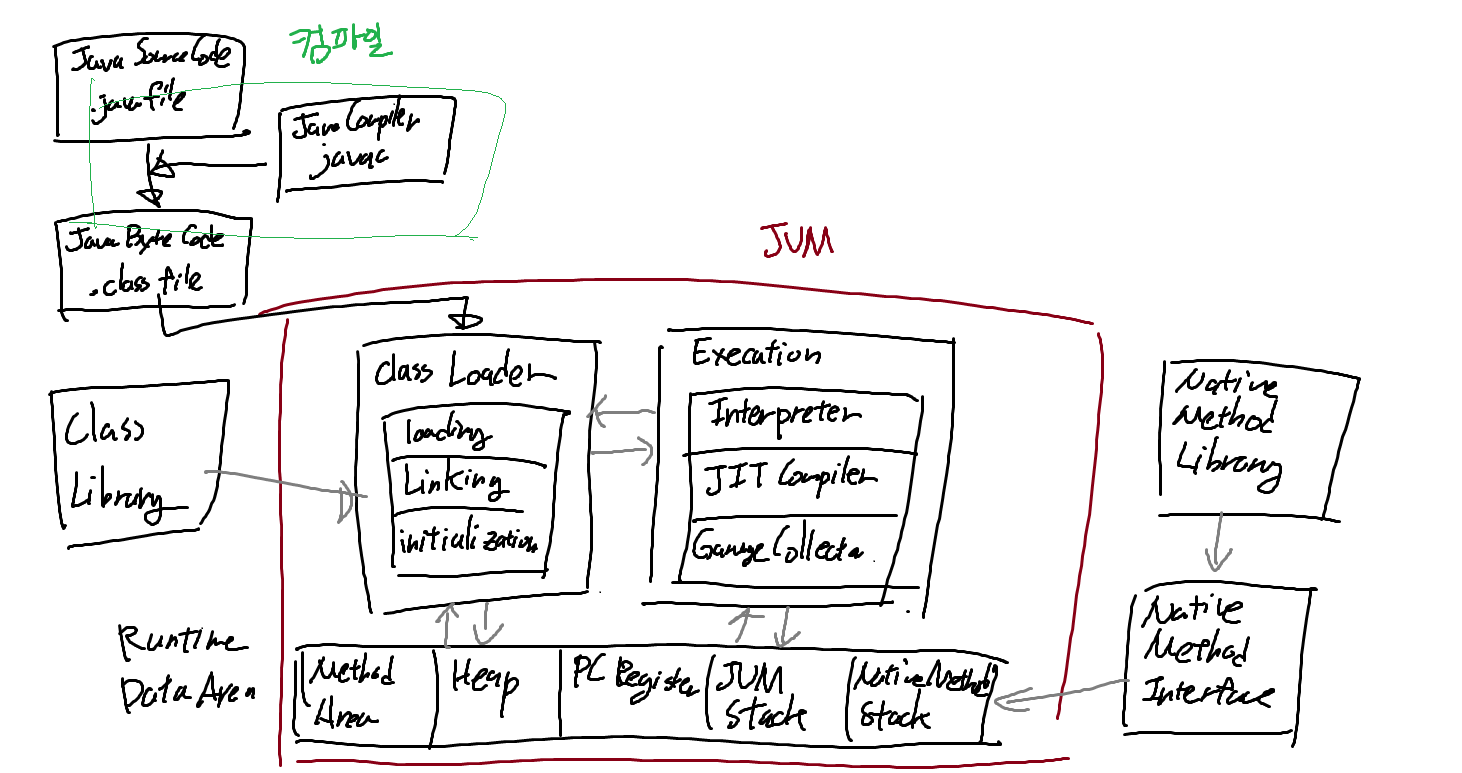 컴파일
Java Source Code
.java file
Java Compiler
javac
Java Byte Code
.class file
JVM
Class Loader
loading
Linking
initialization
Execution
Interpreter
JIT Compiler
Class
Library
Native
Method
Library
Native
Method
Interface
Runtime
Data Area
Method
Area
Heap
PC Register
JVM
Stack
Native Method
Stack